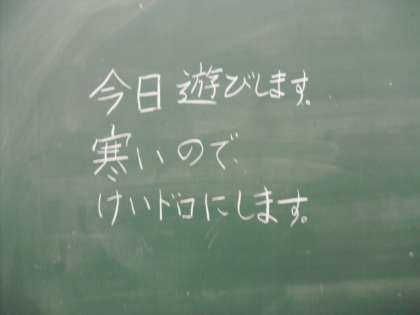 今日遊びします。
寒いので、
けいドロにします。